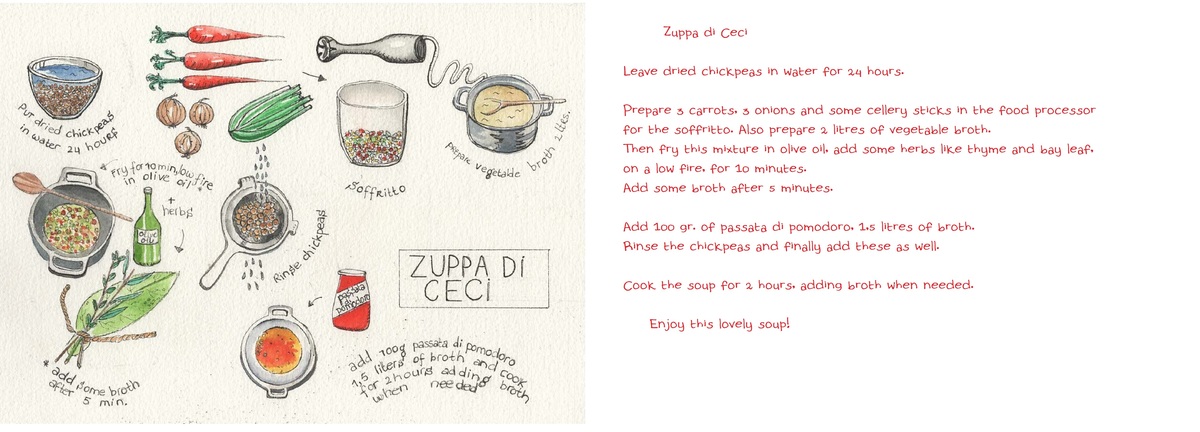 Put dried chickpeas
in water 24 hours
Soffritto
prepare vegetable broth 2 ltrs.
* Fry for 10 min, low fire
in olive oil *
+
herbs
OLIVE
OIL
Rinse chickpeas
ZUPPA DI
CECI
passata
pomodoro
* add some broth
after 5 min.
add 100g passata di pomodoro
1,5 liters of broth and cook
for 2 hours adding broth
when needed
Zuppa di Ceci
Leave dried chickpeas in water for 24 hours.
Prepare 3 carrots, 3 onions and some cellery sticks in the food processor
for the soffritto. Also prepare 2 litres of vegetable broth.
Then fry this mixture in olive oil, add some herbs like thyme and bay leaf,
on a low fire, for 10 minutes.
Add some broth after 5 minutes.
Add 100 gr. of passata di pomodoro, 1,5 litres of broth.
Rinse the chickpeas and finally add these as well.
Cook the soup for 2 hours, adding broth when needed.
Enjoy this lovely soup!